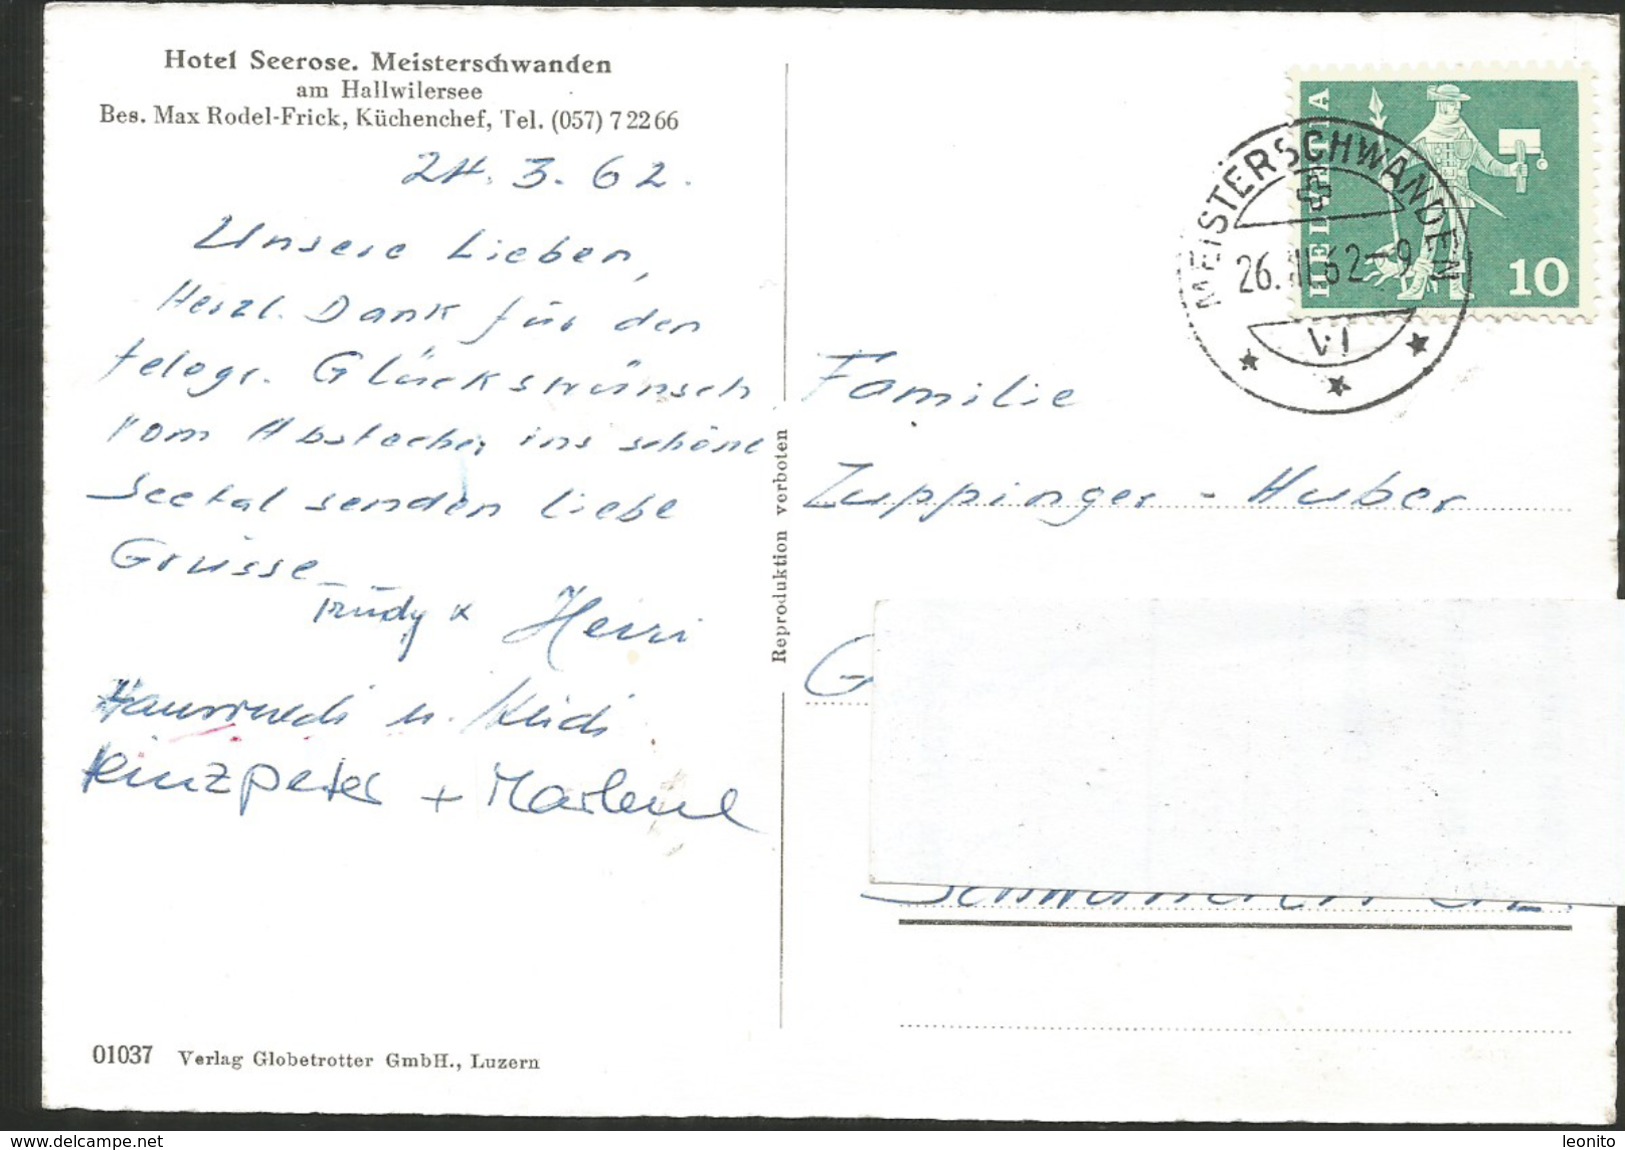 Hotel Seerose. Meisterschwanden
am Hallwilersee
Bes. Max Rodel-Frick, Küchenchef, Tel. (057) 7 22 66
24. 3. 62.
Unsere Lieben,
Herzl. Dank für den
telegr. Glückswünsch
vom Abstecher ins schöne
Seetal senden liebe
Grüsse
Trudy & Heiri
u.
Heinzpeter + Marlene
01037 Verlag Globetrotter GmbH., Luzern
Reproduktion verboten
HELVETIA
10
MEISTERSCHWANDEN
26. III. 62 - 9
Familie
Zuppinger - Huber
G
Schwanden GL.
www.delcampe.net
leonito